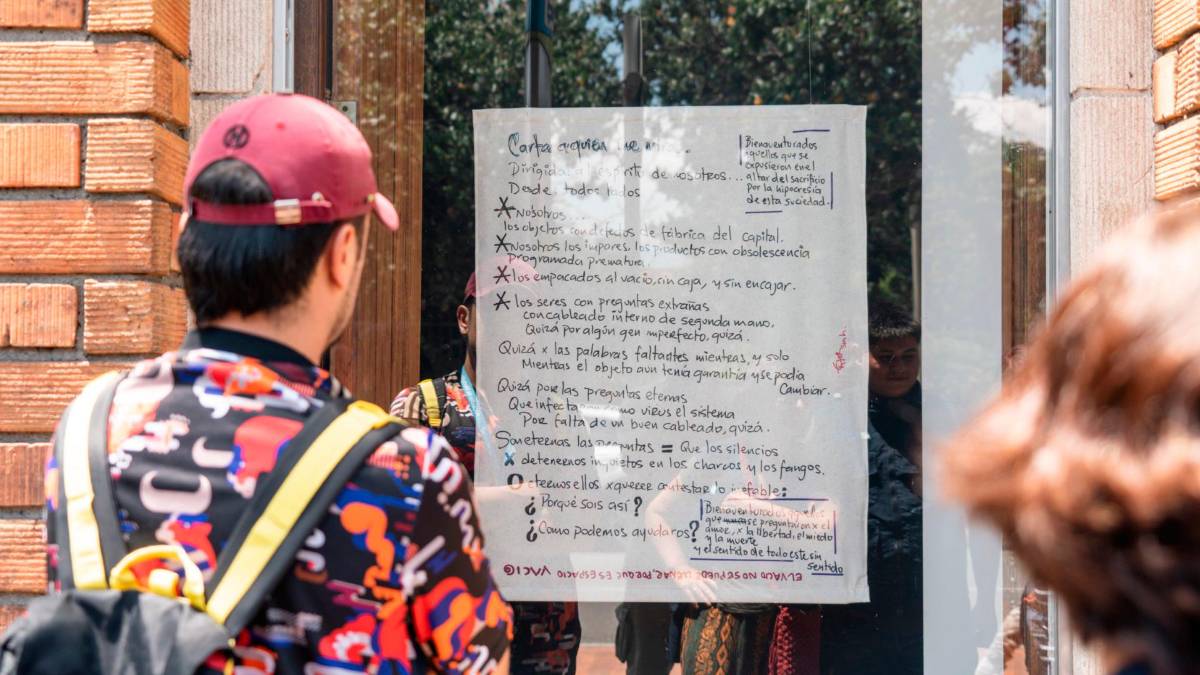 Carta a quién me mira.
Dirigida al espíritu de nosotros...
Desde todos lados
Bienaventurados
aquellos que se
expusieron en el
altar del sacrificio
Por la hipocresía
de esta suciedad.
* Nosotros...
los objetos con defectos de fábrica del capital.
* Nosotros los impares, los productos con obsolescencia
Programada prematura.
* los empacados al vacío, sin caja, y sin encajar.
* los seres con preguntas extrañas
con cableado interno de segunda mano,
Quizá por algún gen imperfecto, quizá.
Quizá x las palabras faltantes mientras, y solo
Mientras el objeto aun tenía garantía y se podía
Cambiar.
Quizá por las preguntas eternas
Que infectan como virus el sistema
Por falta de un buen cableado, quizá.
Son eternas las preguntas = Que los silencios
x detenernos inquietos en los charcos y los fangos,
O eternos ellos x querer contestar lo inefable:
¿Porqué sois así?
¿Como podemos ayudaros?
Bienaventurados aquellos
que se preguntaron x el
amor, x la libertad, el miedo
y la muerte
y el sentido de todo este sin
sentido
EL VACIO NO SE PUEDE LLENAR, PORQUE ES ESPACIO VACIO